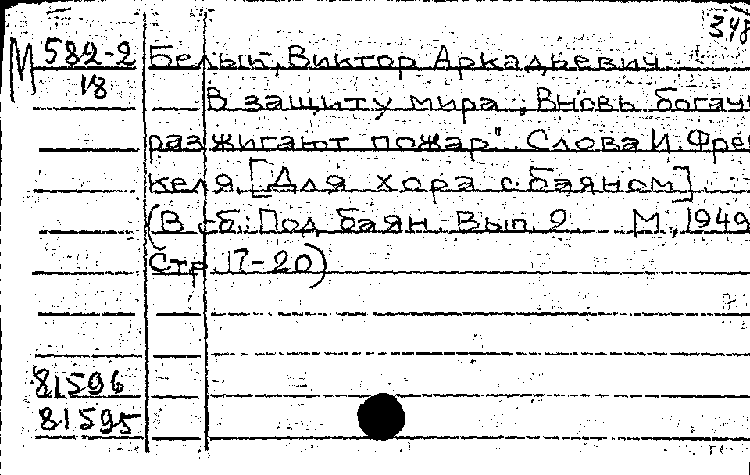 348
М 582-2 Белый, Виктор Аркадьевич
18
В защиту мира „Вновь богачи
разжигают пожар". Слова И. Френ
келя. [Для хора с баяном]
(В сб.: Под баян. Вып. 2 М., 1949
Стр. 17-20)
81596
81595